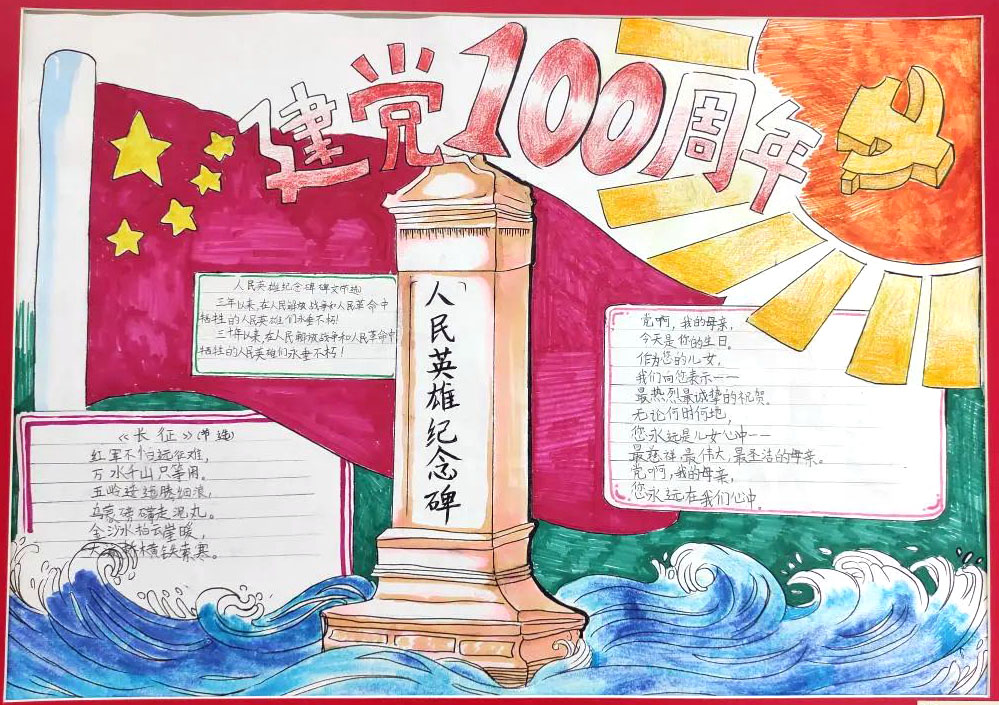 建党100周年
人民英雄纪念碑碑文(节选)
三年以来,在人民解放战争和人民革命中
牺牲的人民英雄们永垂不朽!
三十年以来,在人民解放战争和人民革命中
牺牲的人民英雄们永垂不朽!
人民英雄纪念碑
《长征》(节选)
红军不怕远征难,
万水千山只等闲。
五岭逶迤腾细浪,
乌蒙磅礴走泥丸。
金沙水拍云崖暖,
大桥横铁索寒。
党啊,我的母亲,
今天是您的生日。
作为您的儿女,
我们向您表示——
最热烈最诚挚的祝贺。
无论何时何地,
您永远是儿女心中——
最慈祥,最伟大,最圣洁的母亲。
党啊,我的母亲,
您永远在我们心中。